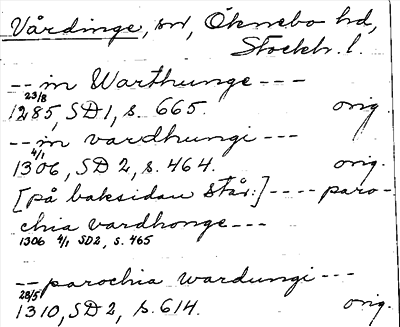 Vårdinge, sn, Öknebo hd,
Stockh. l.
-- in Warthunge ---
23/8
1285, SD 1, s. 665. orig.
-- in vardhungi ---
4/1
1306, SD 2, s. 464. orig.
[på baksidan står:] ---- paro-
chia vardhonge ---
1306 4/1 SD2, s. 465
-- parochia wardungi ---
28/5
1310, SD 2, s. 614. orig.